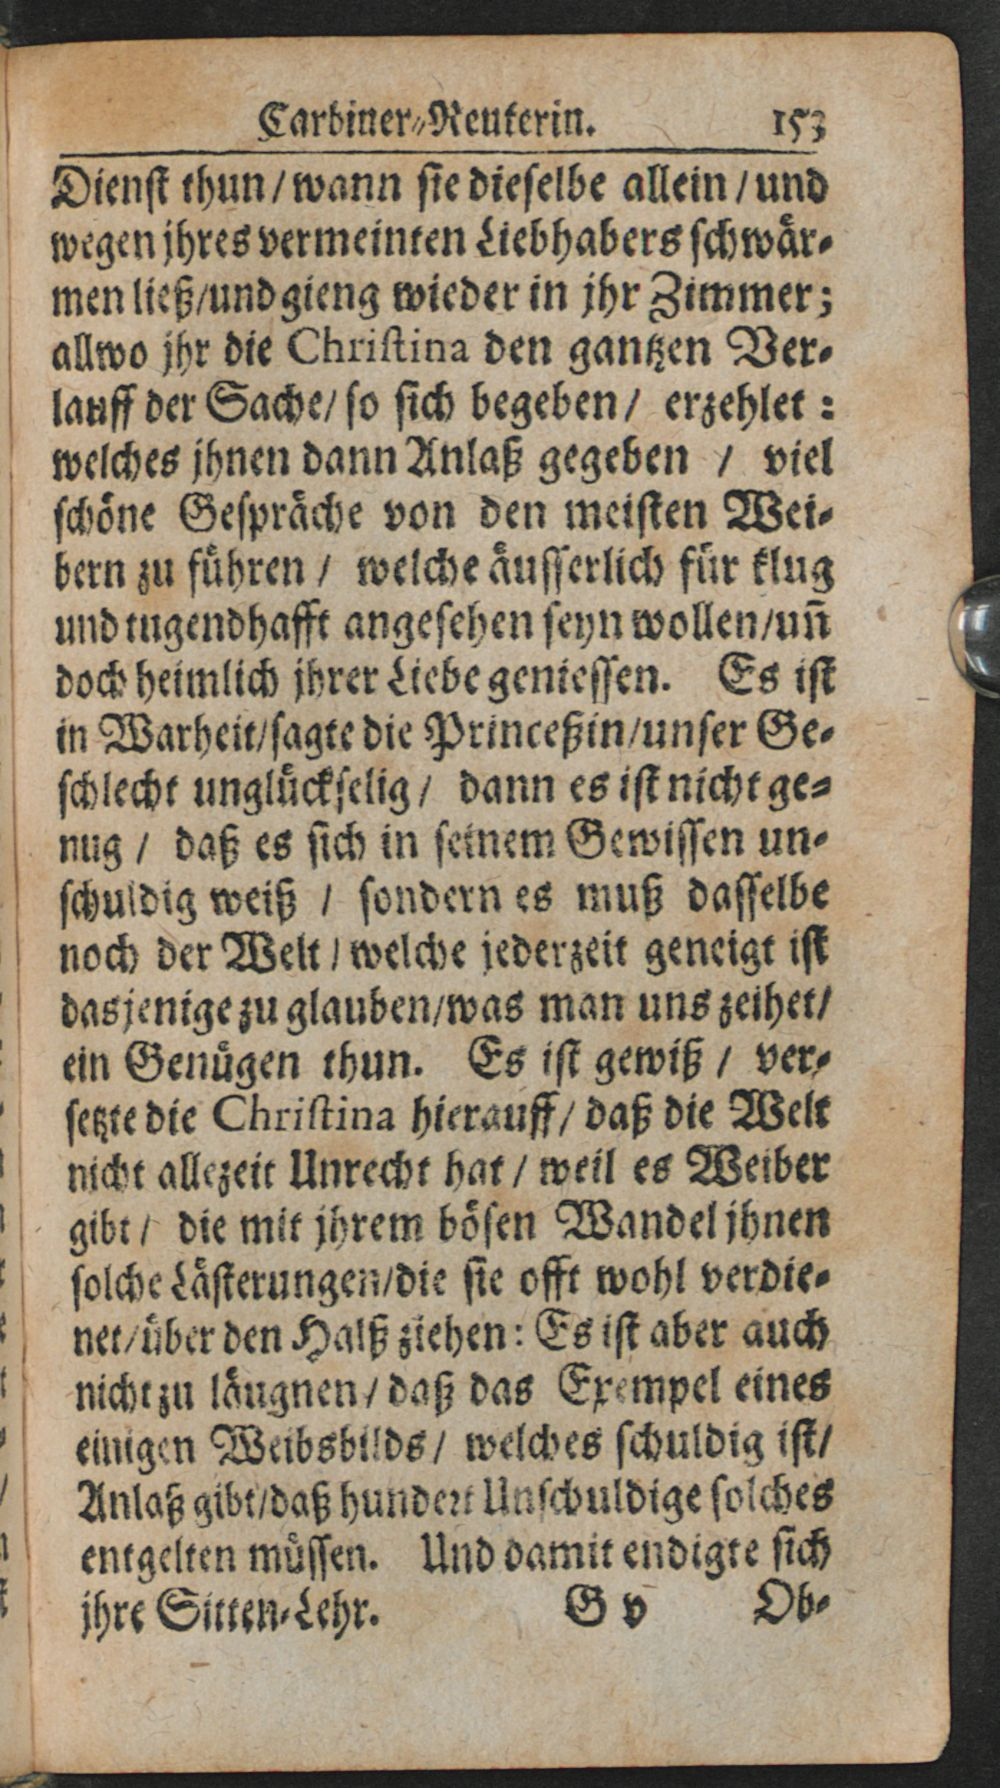 Carbiner-Reuterin. 153
Dienst thun/wann sie dieselbe allein/und
wegen jhres vermeinten Liebhabers schwär-
men ließ/und gieng wieder in jhr Zimmer;
allwo jhr die Christina den gantzen Ver-
lauff der Sache/ so sich begeben/ erzehlet:
welches jhnen dann Anlaß gegeben / viel
schöne Gespräche von den meisten Wei-
bern zu führen / welche äusserlich für klug
und tugendhafft angesehen seyn wollen/uñ
doch heimlich jhrer Liebe geniessen. Es ist
in Warheit/sagte die Princeßin/unser Ge-
schlecht unglückselig/ dann es ist nicht ge-
nug / daß es sich in seinem Gewissen un-
schuldig weiß / sondern es muß dasselbe
noch der Welt / welche jederzeit geneigt ist
dasjenige zu glauben/was man uns zeihet/
ein Genügen thun. Es ist gewiß / ver-
setzte die Christina hierauff/ daß die Welt
nicht allezeit Unrecht hat / weil es Weiber
gibt / die mit jhrem bösen Wandel jhnen
solche Lästerungen/die sie offt wohl verdie-
net/über den Halß ziehen: Es ist aber auch
nicht zu läugnen/ daß das Exempel eines
einigen Weibsbilds/ welches schuldig ist/
Anlaß gibt/daß hundert Unschuldige solches
entgelten müssen. Und damit endigte sich
jhre Sitten-Lehr. G v Ob-